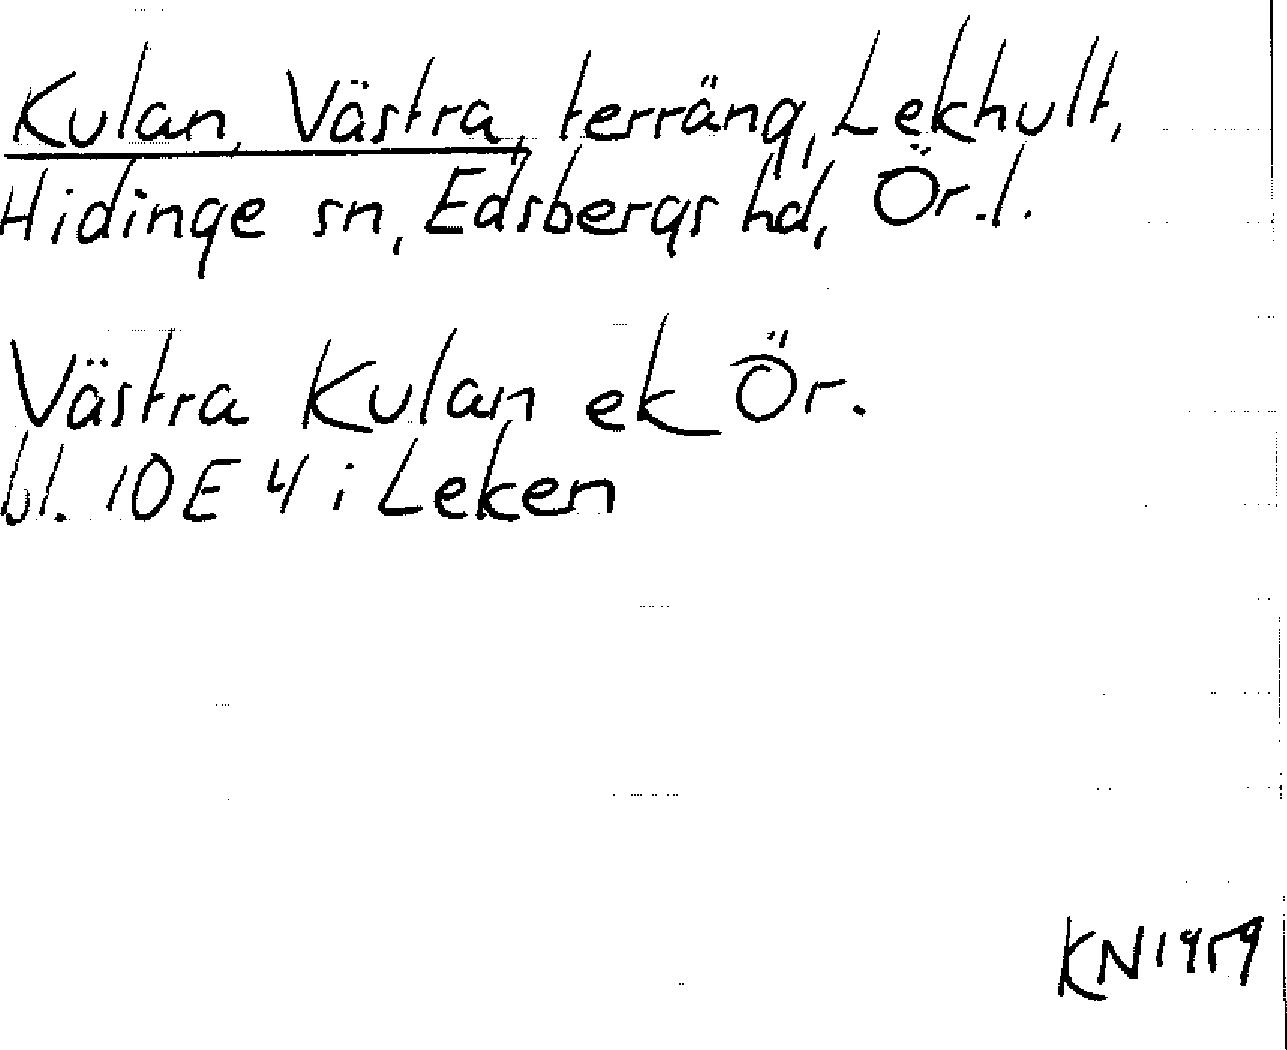 Kulan, Västra, terräng, Lekhult,
Hidinge sn, Edsbergs hd, Ör.l.
Västra Kulan ek Ör.
bl. 10E 4 i Leken
KN 1959